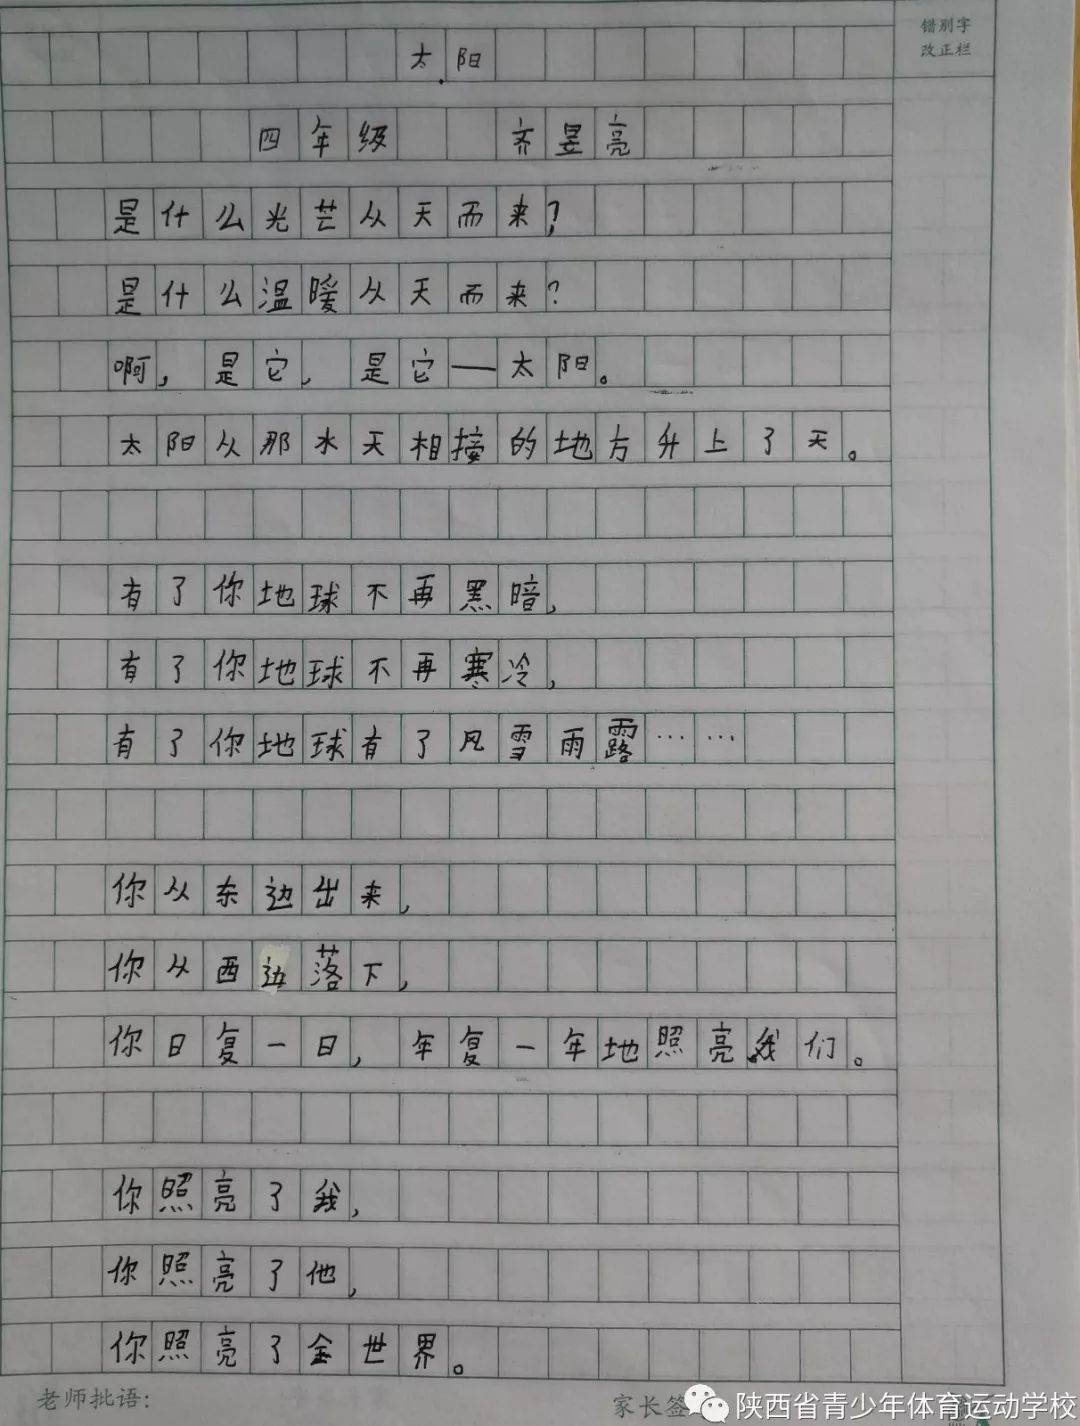 错别字
改正栏
太阳
四年级 齐昱亮
是什么光芒从天而来?
是什么温暖从天而来?
啊，是它，是它——太阳。
太阳从那水天相接的地方升上了天。
有了你地球不再黑暗，
有了你地球不再寒冷，
有了你地球有了风雪雨露……
你从东边出来，
你从西边落下，
你日复一日，年复一年地照亮我们。
你照亮了我，
你照亮了他，
你照亮了全世界。
老师批语：
家长签
陕西省青少年体育运动学校